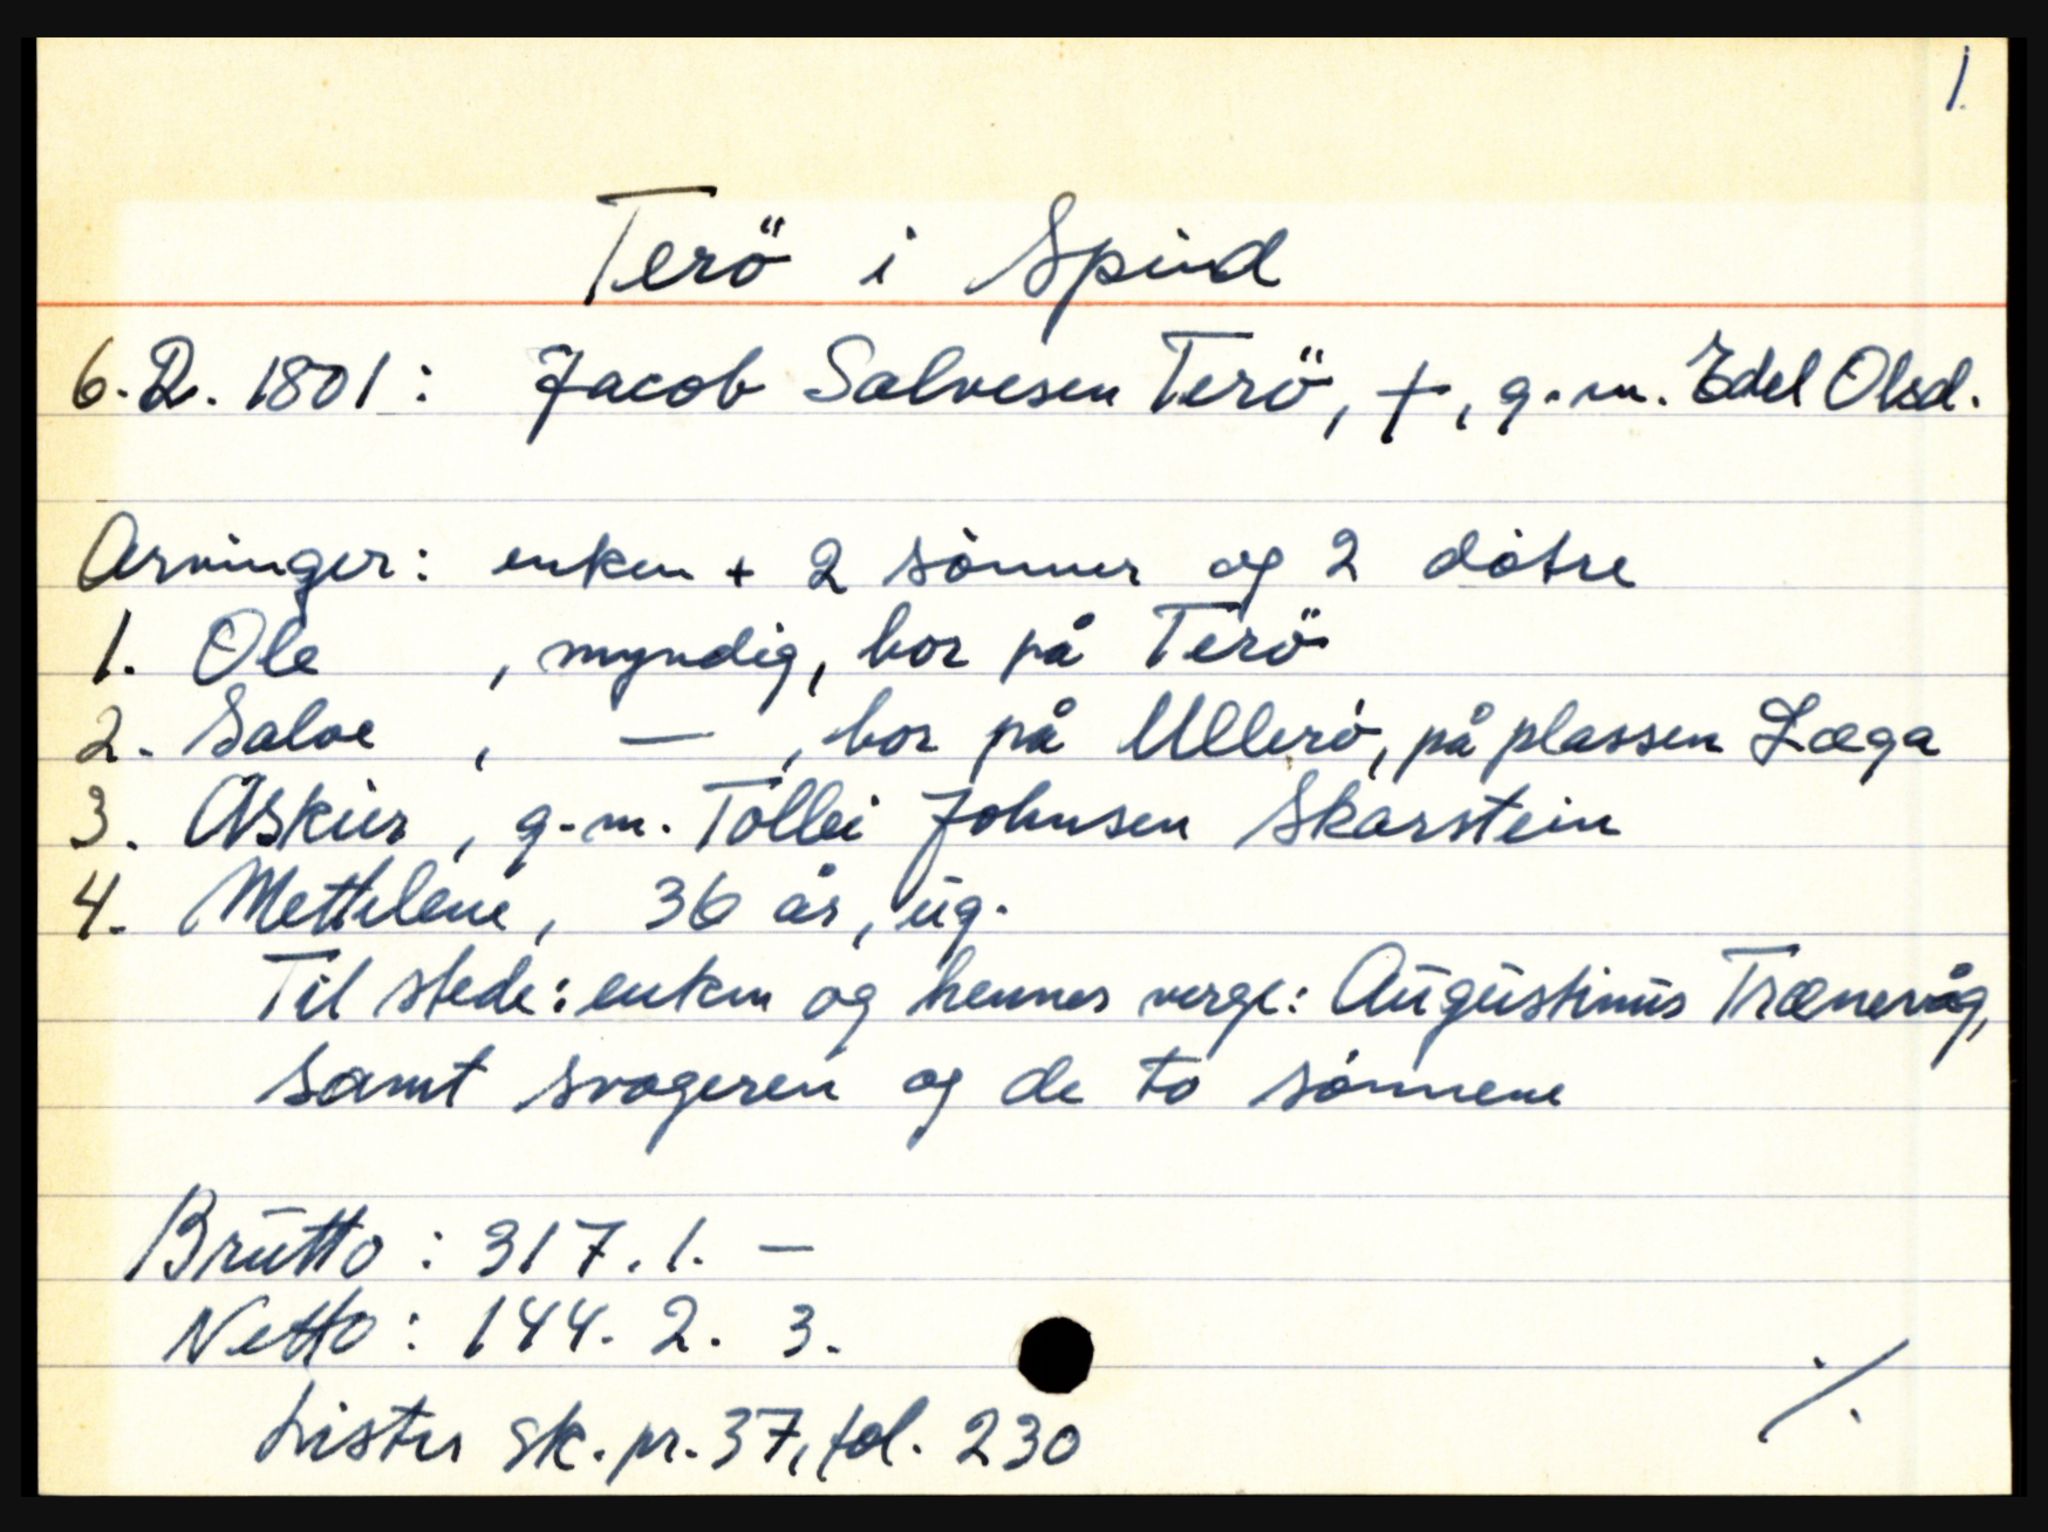 1.
Terö i Spind
6.2.1801: Jacob Salvesen Terö, †, g.m. Edel Olsd.
Arvinger: enken + 2 sönner og 2 døtre
1. Ole , myndig, bor på Terö
2. Salve , — , bor på Ullerø, på plassen Læga
3. Askier, g.m. Tollei Johnsen Skarstein
4. Mettelene, 36 år, ug.
Til stede: enken og hennes verge: Augustinus Trænevåg,
samt svogeren og de to sønnene
Brutto: 317.1. —
Netto: 144. 2. 3.
Lister sk.pr. 37, fol. 230
./.